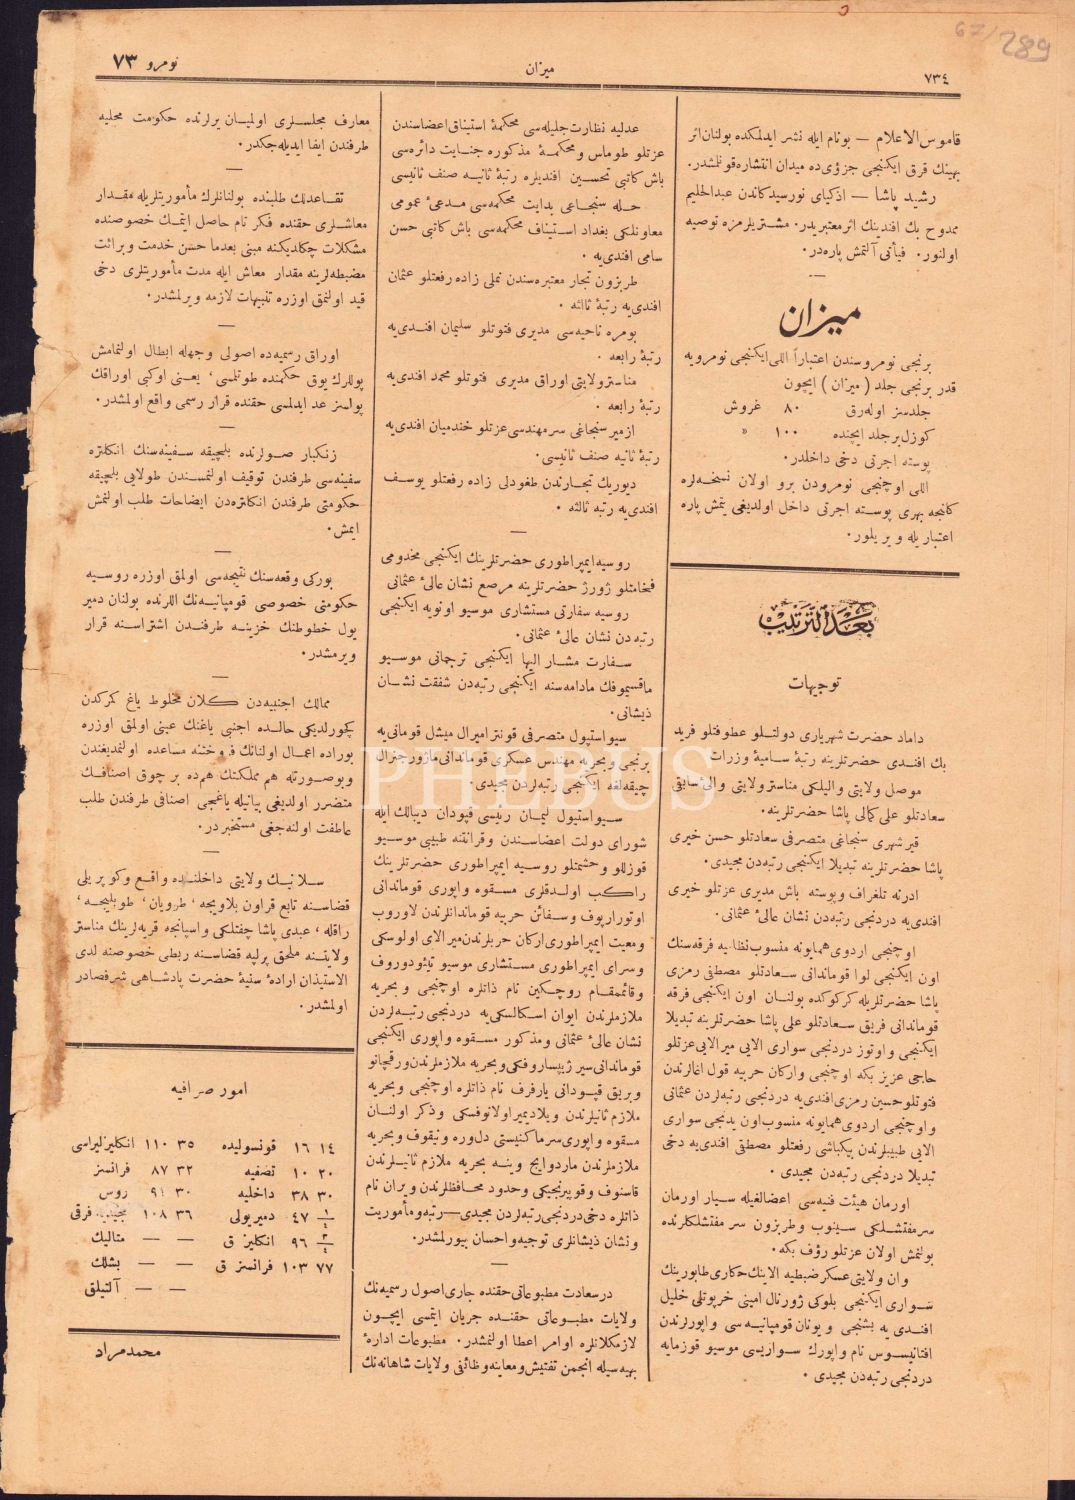 ٧٣٤
ميزان
نومرو ٧٣
قاموس الاعلام — بونام ايله نشر ايدلمكده بولنان اثر
بهينك قرق ايكنجى جزؤى ده ميدان انتشاره قونلمشدر.
رشيد پاشا — اذكياى نورسيدكاندن عبدالحليم
ممدوح بك افندينك اثر معتبريدر. مشتريلرمزه توصيه
اولنور. فيأتى آلتمش پاره در.
ميزان
برنجى نومروسندن اعتباراً اللى ايكنجى نومرويه
قدر برنجى جلد ( ميزان ) ايچون
جلدسز اوله رق ٨٠ غروش
كوزل بر جلد ايچنده ١٠٠ »
پوسته اجرتى دخى داخلدر.
اللى اوچنجى نومرودن برو اولان نسخه لره
كلنجه بهرى پوسته اجرتى داخل اولديغى يتمش پاره
اعتباريله ويريلور.
بعد الترتيب
توجيهات
داماد حضرت شهريارى دولتلو عطوفتلو فريد
بك افندى حضرتلرينه رتبهٔ ساميهٔ وزارت
موصل ولايتى واليلكى مناستر ولايتى والئ سابق
سعادتلو على كمالى پاشا حضرتلرينه.
قيرشهرى سنجاغى متصرفى سعادتلو حسن خيرى
پاشا حضرتلرينه تبديلا ايكنجى رتبه دن مجيدى.
ادرنه تلغراف وپوسته باش مديرى عزتلو خيرى
افندى يه دردنجى رتبه دن نشان عالئ عثمانى.
اوچنجى اردوى همايونه منسوب نظاميه فرقه سنك
اون ايكنجى لوا قوماندانى سعادتلو مصطفى رمزى
پاشا حضرتلريله كركوكده بولنان اون ايكنجى فرقه
قوماندانى فريق سعادتلو على پاشا حضرتلرينه تبديلا
ايكنجى واوتوز دردنجى سوارى الايى ميرالايى عزتلو
حاجى عزيز بكه اوچنجى واركان حربيه قول اغالرندن
فتوتلو حسين رمزى افندى يه دردنجى رتبه لردن عثمانى
واوچنجى اردوى همايونه منسوب اون يدنجى سوارى
الايى طبيبلرندن بيكباشى رفعتلو مصطفى افندى يه دخى
تبديلا دردنجى رتبه دن مجيدى.
اورمان هيئت فنيه سى اعضالغيله سيار اورمان
سرمفتشلكى سينوب وطربزون سر مفتشلكلرنده
بولنمش اولان عزتلو رؤف بكه.
وان ولايتى عسكر ضبطيه الاينك حكارى طابورينك
سوارى ايكنجى بلوكى ژورنال امينى خرپوتلى خليل
افندى يه بشنجى ويونان قومپانيه سى واپورلرندن
افتانيسوس نام واپورك سواريسى موسيو قوزمايه
دردنجى رتبه دن مجيدى.
عدليه نظارت جليله سى محكمهٔ استيناق اعضاسندن
عزتلو طوماس ومحكمهٔ مذكوره جنايت دائره سى
باش كاتبى تحسين افنديلره رتبهٔ ثانيه صنف ثانيسى
حله سنجاغى بدايت محكمه سى مدعئ عمومى
معاونلكى بغداد استيناف محكمه سى باش كاتبى حسن
سامى افندى يه.
طربزون تجار معتبره سندن نملى زاده رفعتلو عثمان
افندى يه رتبهٔ ثالثه.
بومره ناحيه سى مديرى فتوتلو سليمان افندى يه
رتبهٔ رابعه.
مناستر ولايتى اوراق مديرى فتوتلو محمد افندى يه
رتبهٔ رابعه.
ازمير سنجاغى سرمهندسى عزتلو خندميان افندى يه
رتبهٔ ثانيه صنف ثانيسى.
ديوريك تجارندن طغودلى زاده رفعتلو يوسف
افندى يه رتبه ثالثه.
روسيه ايمپراطورى حضرتلرينك ايكنجى مخدومى
فخامتلو ژورژ حضرتلرينه مرصع نشان عالئ عثمانى
روسيه سفارتى مستشارى موسيو اونويه ايكنجى
رتبه دن نشان عالئ عثمانى.
سفارت مشار اليها ايكنجى ترجمانى موسيو
ماقسيموفك مادامه سنه ايكنجى رتبه دن شفقت نشان
ذيشانى.
سيواستپول متصرفى قونتر اميرال ميشل قومانى يه
برنجى وبحريه مهندس عسكرى قوماندانى ماژور جنرال
چيقه لغه ايكنجى رتبه لردن مجيدى.
سيواستپول ليمان رئيسى قپودان ديبالك ايله
شوراى دولت اعضاسندن وقرانتنه طبيبى موسيو
قوزللو وحشمتلو روسيه ايمپراطورى حضرتلرينك
راكب اولدقلرى مسقوه واپورى قوماندانى
اوتورارپوف وسفائن حربيه قوماندانلرندن لاوروب
ومعيت ايمپراطورى اركان حربلرندن ميرالاى اولوسكى
وسراى ايمپراطورى مستشارى موسيو تيئودوروف
وقائممقام روچكين نام ذاتلره اوچنجى وبحريه
ملازملرندن ايوان اسكالسكى يه دردنجى رتبه لردن
نشان عالئ عثمانى ومذكور مسقوه واپورى ايكنجى
قوماندانى سيرژيپساروفكى وبحريه ملازملرندن ورقچانو
وبريق قپودانى يارفرف نام ذاتلره اوچنجى وبحريه
ملازم ثانيلرندن ويلاديمير اولانوفسكى وذكر اولنان
مسقوه واپورى سرماكنيستى دلوره ونيقوف وبحريه
ملازملرندن ماردوايج وينه بحريه ملازم ثانيلرندن
قاسنوف وقوپيرنجيكى وحدود محافظلرندن ويران نام
ذاتلره دخى دردنجى رتبه لردن مجيدى — رتبه ومأموريت
ونشان ذيشانلرى توجيه واحسان بيورلمشدر.
درسعادت مطبوعاتى حقنده جارى اصول رسميه نك
ولايات مطبوعاتى حقنده جريان ايتمسى ايچون
لازمكلانلره اوامر اعطا اولنمشدر. مطبوعات ادارهٔ
بهيه سيله انجمن تفتيش ومعاينه وظائفى ولايات شاهانه نك
معارف مجلسلرى اولميان يرلرنده حكومت محليه
طرفندن ايفا ايديله جكدر.
تقاعدلك طلبنده بولنانلرك مأموريتلريله مقدار
معاشلرى حقنده فكر تام حاصل ايتمك خصوصنده
مشكلات چكلديكنه مبنى بعدما حسن خدمت وبرائت
مضبطه لرينه مقدار معاش ايله مدت مأموريتلرى دخى
قيد اولنمق اوزره تنبيهات لازمه ويرلمشدر.
اوراق رسميه ده اصولى وجهله ابطال اولنمامش
پوللرك يوق حكمنده طوتلمسى، يعنى اوكبى اوراقك
پولسز عد ايدلمسى حقنده قرار رسمى واقع اولمشدر.
زنكبار صولرنده بلچيقه سفينه سنك انكلتره
سفينه سى طرفندن توقيف اولنمسندن طولايى بلچيقه
حكومتى طرفندن انكلتره دن ايضاحات طلب اولنمش
ايمش.
بوركى وقعه سنك نتيجه سى اولمق اوزره روسيه
حكومتى خصوصى قومپانيه نك اللرنده بولنان دمير
يول خطوطنك خزينه طرفندن اشتراسنه قرار
ويرمشدر.
ممالك اجنبيه دن كلان مخلوط ياغ كمركدن
كچورلديكى حالده اجنبى ياغنك عينى اولمق اوزره
بوراده اعمال اولنانك فروختنه مساعده اولنمديغندن
وبوصورتله هم مملكتك همده بر چوق اصنافك
متضرر اولديغى بيانيله ياغجى اصنافى طرفندن طلب
عاطفت اولنه جغى مستخبردر.
سلانيك ولايتى داخلنده واقع وكوپريلى
قضاسنه تابع قراون بلاويجه، طرويان، طوبليجه،
راقله، عبدى پاشا چفتلكى واسپانجه قريه لرينك مناستر
ولايتنه ملحق پرلپه قضاسنه ربطى خصوصنه لدى
الاستيذان ارادهٔ سنيهٔ حضرت پادشاهى شرفصادر
اولمشدر.
امور صرافيه
١٤ ١٦ قونسوليده ٣٥ ١١٠ انكليز ليراسى
٢٠ ١٠ تصفيه ٣٢ ٨٧ فرانسز
٣٠ ٣٨ داخليه ٣٠ ٩١ روس
١/٤ ٤٧ دميريولى ٣٦ ١٠٨ مجيديه فرقى
٣/٤ ٩٦ انكليز ق — — متاليك
٧٧ ١٠٣ فرانسز ق — — بشلك
— — آلتيلق
محمد مراد
PHEBUS
67/289